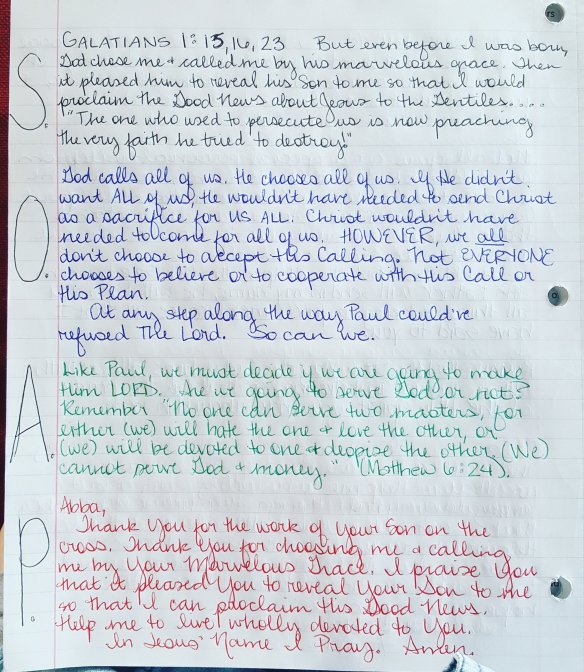 S.
GALATIANS 1:15,16,23 But even before I was born,
God chose me & called me by his marvelous grace. Then
it pleased him to reveal his Son to me so that I would
proclaim the Good News about Jesus to the Gentiles....
"The one who used to persecute us is now preaching
the very faith he tried to destroy!"
O.
God calls all of us. He chooses all of us. If He didn't
want ALL of us, He wouldn't have needed to send Christ
as a sacrifice for US ALL. Christ wouldn't have
needed to come for all of us. HOWEVER, we all
don't choose to accept this Calling. Not EVERYONE
chooses to believe or to cooperate with His Call or
His Plan.
At any step along the way Paul could've
refused The Lord. So can we.
A.
Like Paul, we must decide if we are going to make
Him LORD. Are we going to serve God or not?
Remember "No one can serve two masters, for
either (we) will hate the one & love the other, or
(we) will be devoted to one & despise the other. (We)
cannot serve God & money." (Matthew 6:24).
P.
Abba,
Thank You for the work of Your Son on the
cross. Thank You for choosing me & calling
me by Your Marvelous Grace. I praise You
that it pleased You to reveal Your Son to me
so that I can proclaim His Good News.
Help me to live wholly devoted to You.
In Jesus' Name I Pray. Amen.